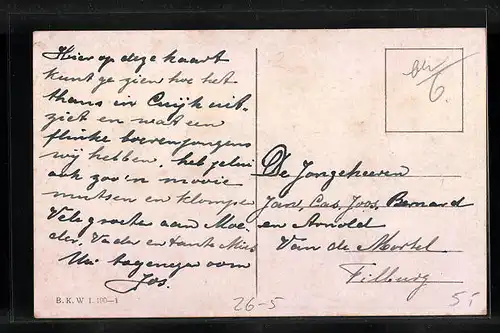 Hier op deze kaart
kunt ge zien hoe het
thans in Cuijk uit-
ziet en wat een
flinke boerenjongens
wij hebben. heb
ook zoo'n mooie
mutsen en klompen
Vele groeten aan Moe-
der, Vader en tante Mies
Uw oom
Jos.
B. K. W I. 190-1
De Jongeheeren
Cas, Joos, Bernard
en Arnold
Van de Mortel
Tilburg
6.
26-5
5-